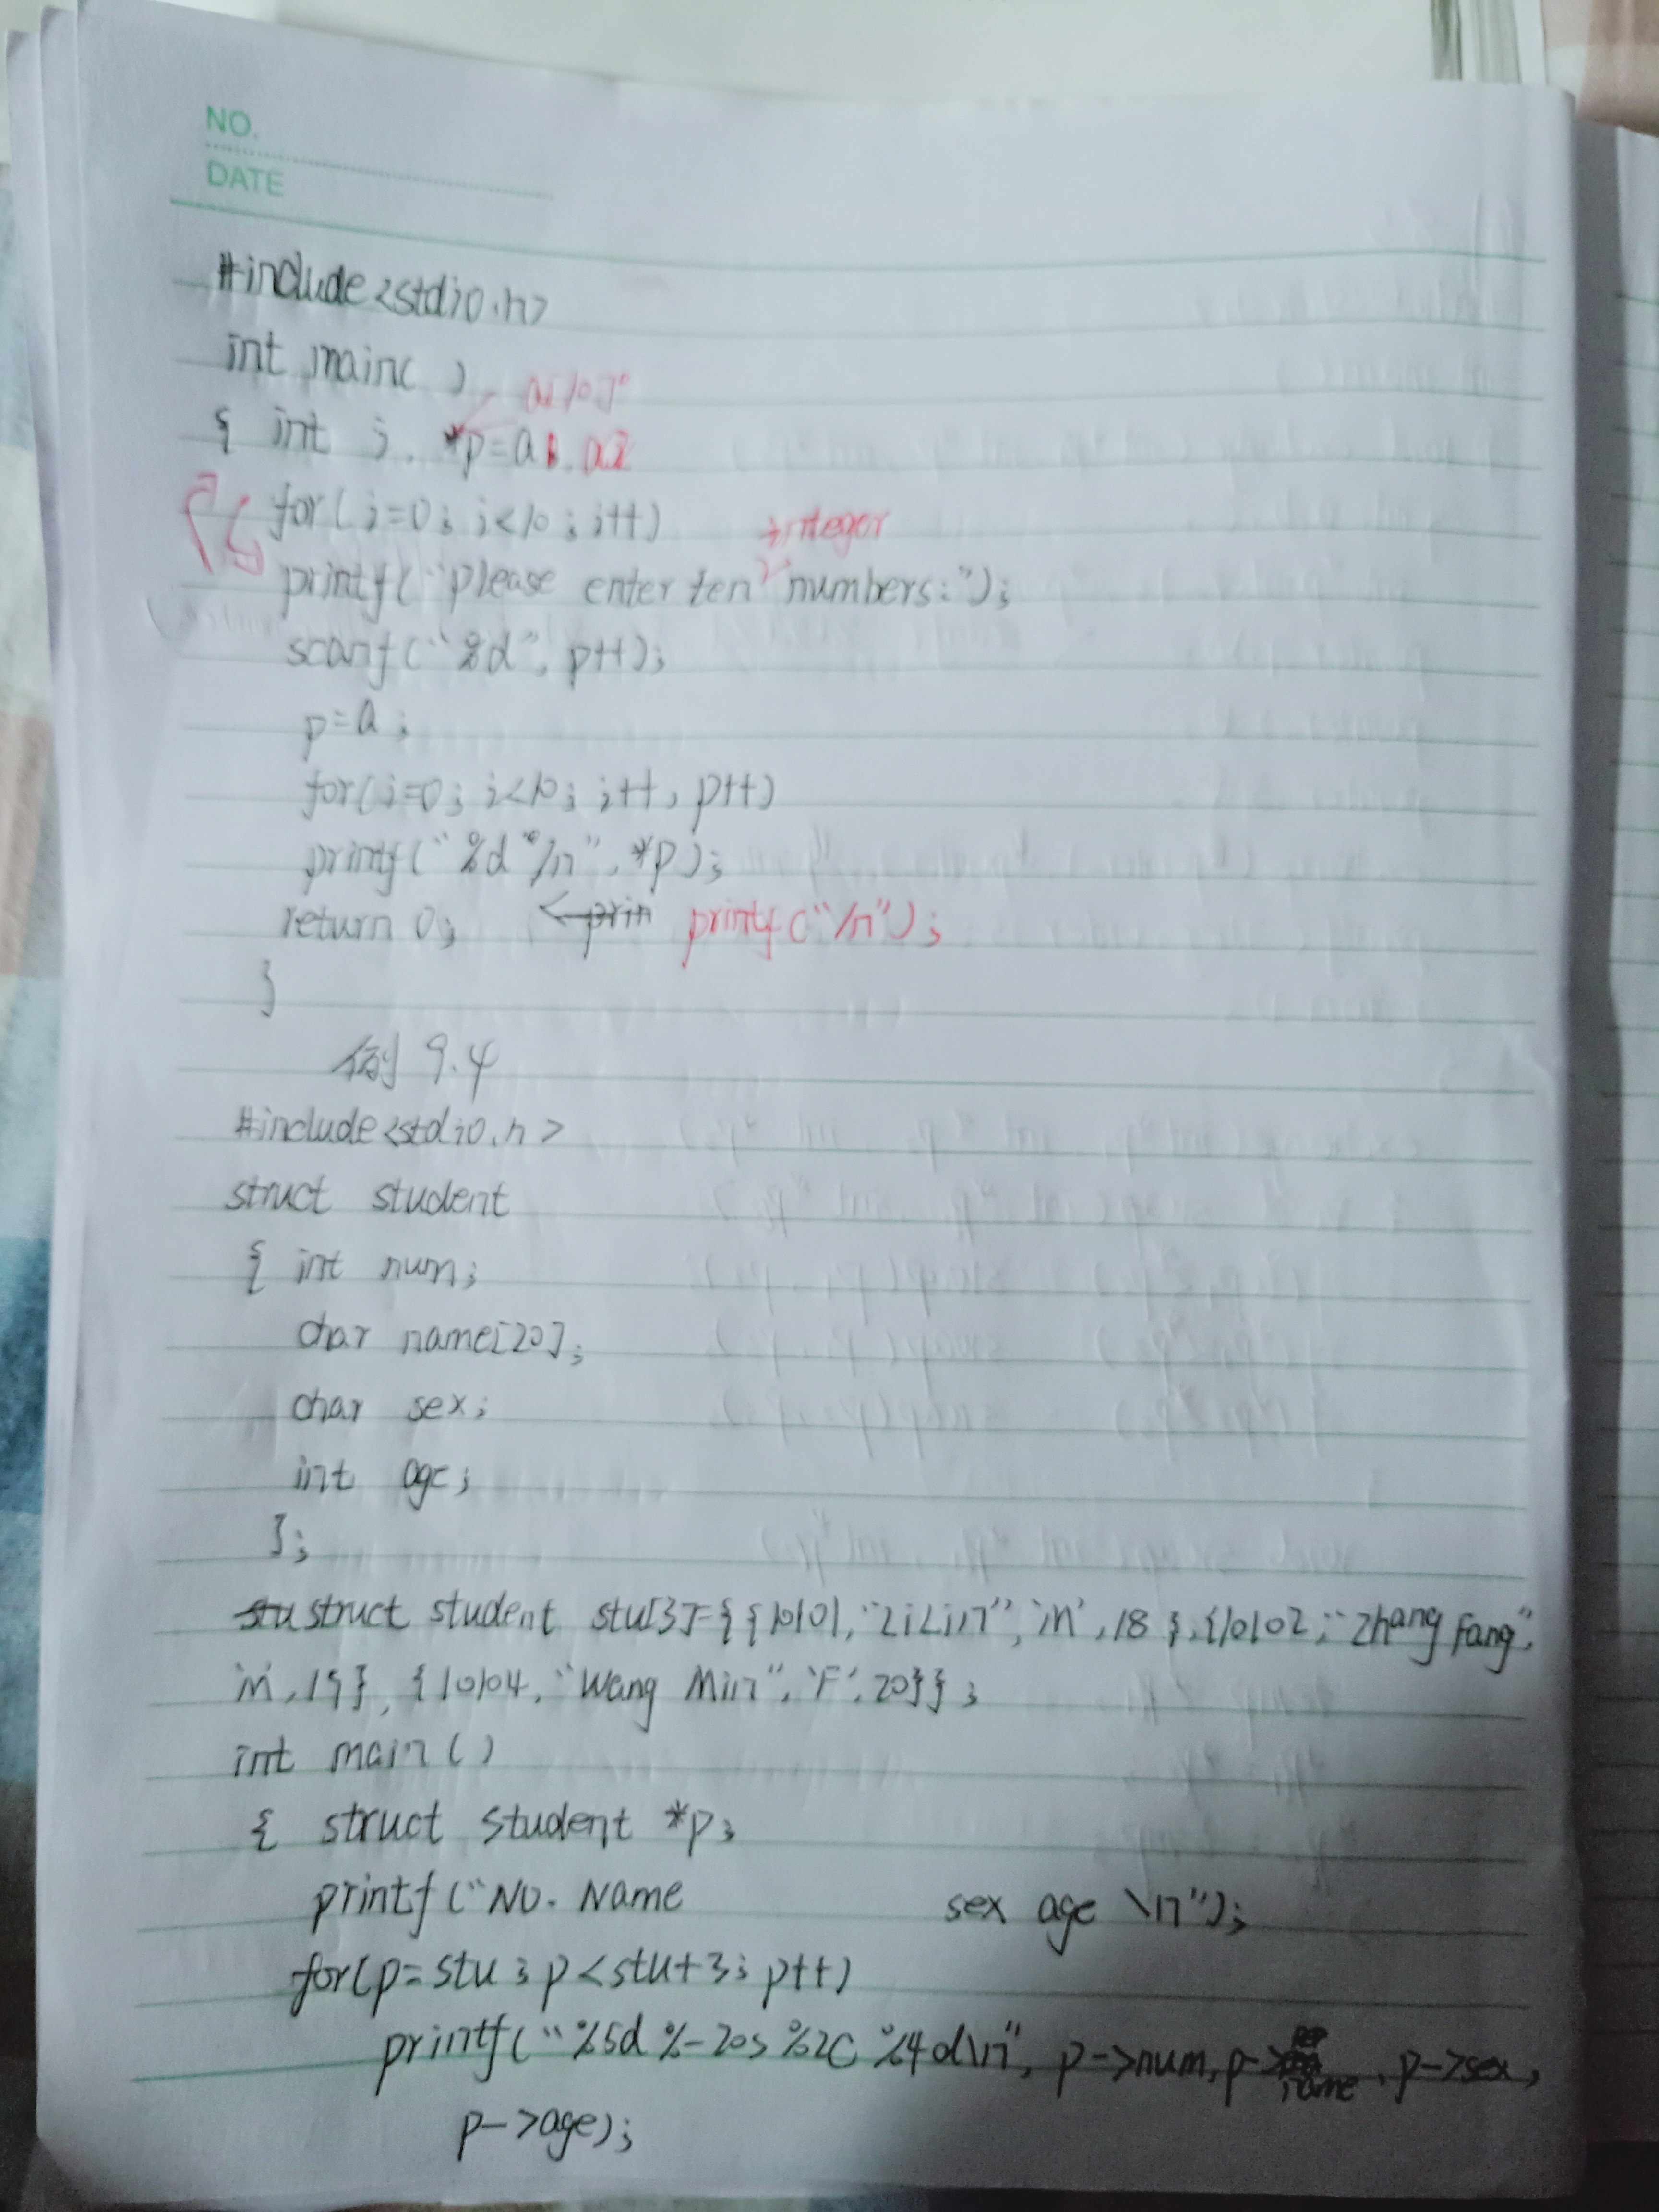 NO.
DATE
#include<stdio.h>
int main( )
a[10]
{ int i, *p=a
for(i=0; i<10; i++)
integer
printf("please enter ten numbers:");
scanf("%d", p++);
p=a;
for(i=0; i<10; i++, p++)
printf("%d /n", *p);
return 0; printf("/n");
}
例9.4
#include<stdio.h>
struct student
{ int num;
char name[20];
char sex;
int age;
};
struct student stu[3]={{10101, "LiLin", 'M', 18}, {10102, "Zhang Fang",
'M', 19}, {10104, "Wang Min", 'F', 20}};
int main()
{ struct student *p;
printf("NO. Name sex age \n");
for(p=stu; p<stu+3; p++)
printf("%5d %-20s %2c %4d\n", p->num, p->name, p->sex,
p->age);